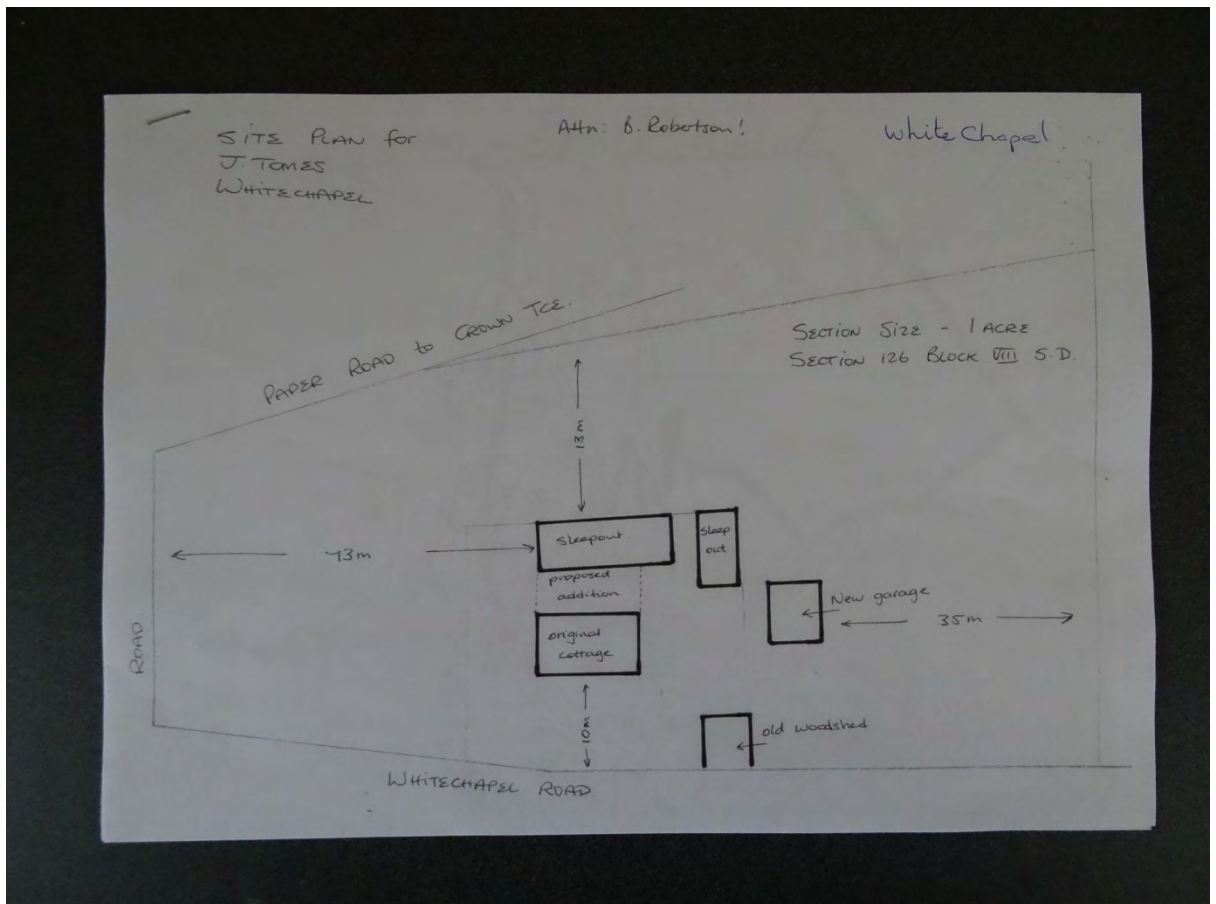 SITE PLAN for
J. TOMES
WHITECHAPEL
Attn: B. Robertson!
White Chapel
PAPER ROAD to CROWN TCE.
SECTION SIZE - 1 ACRE
SECTION 126 BLOCK VIII S.D.
13m
73m
sleepout.
sleep
out
proposed
addition
original
cottage
New garage
35m
ROAD
10m
old woodshed
WHITECHAPEL ROAD